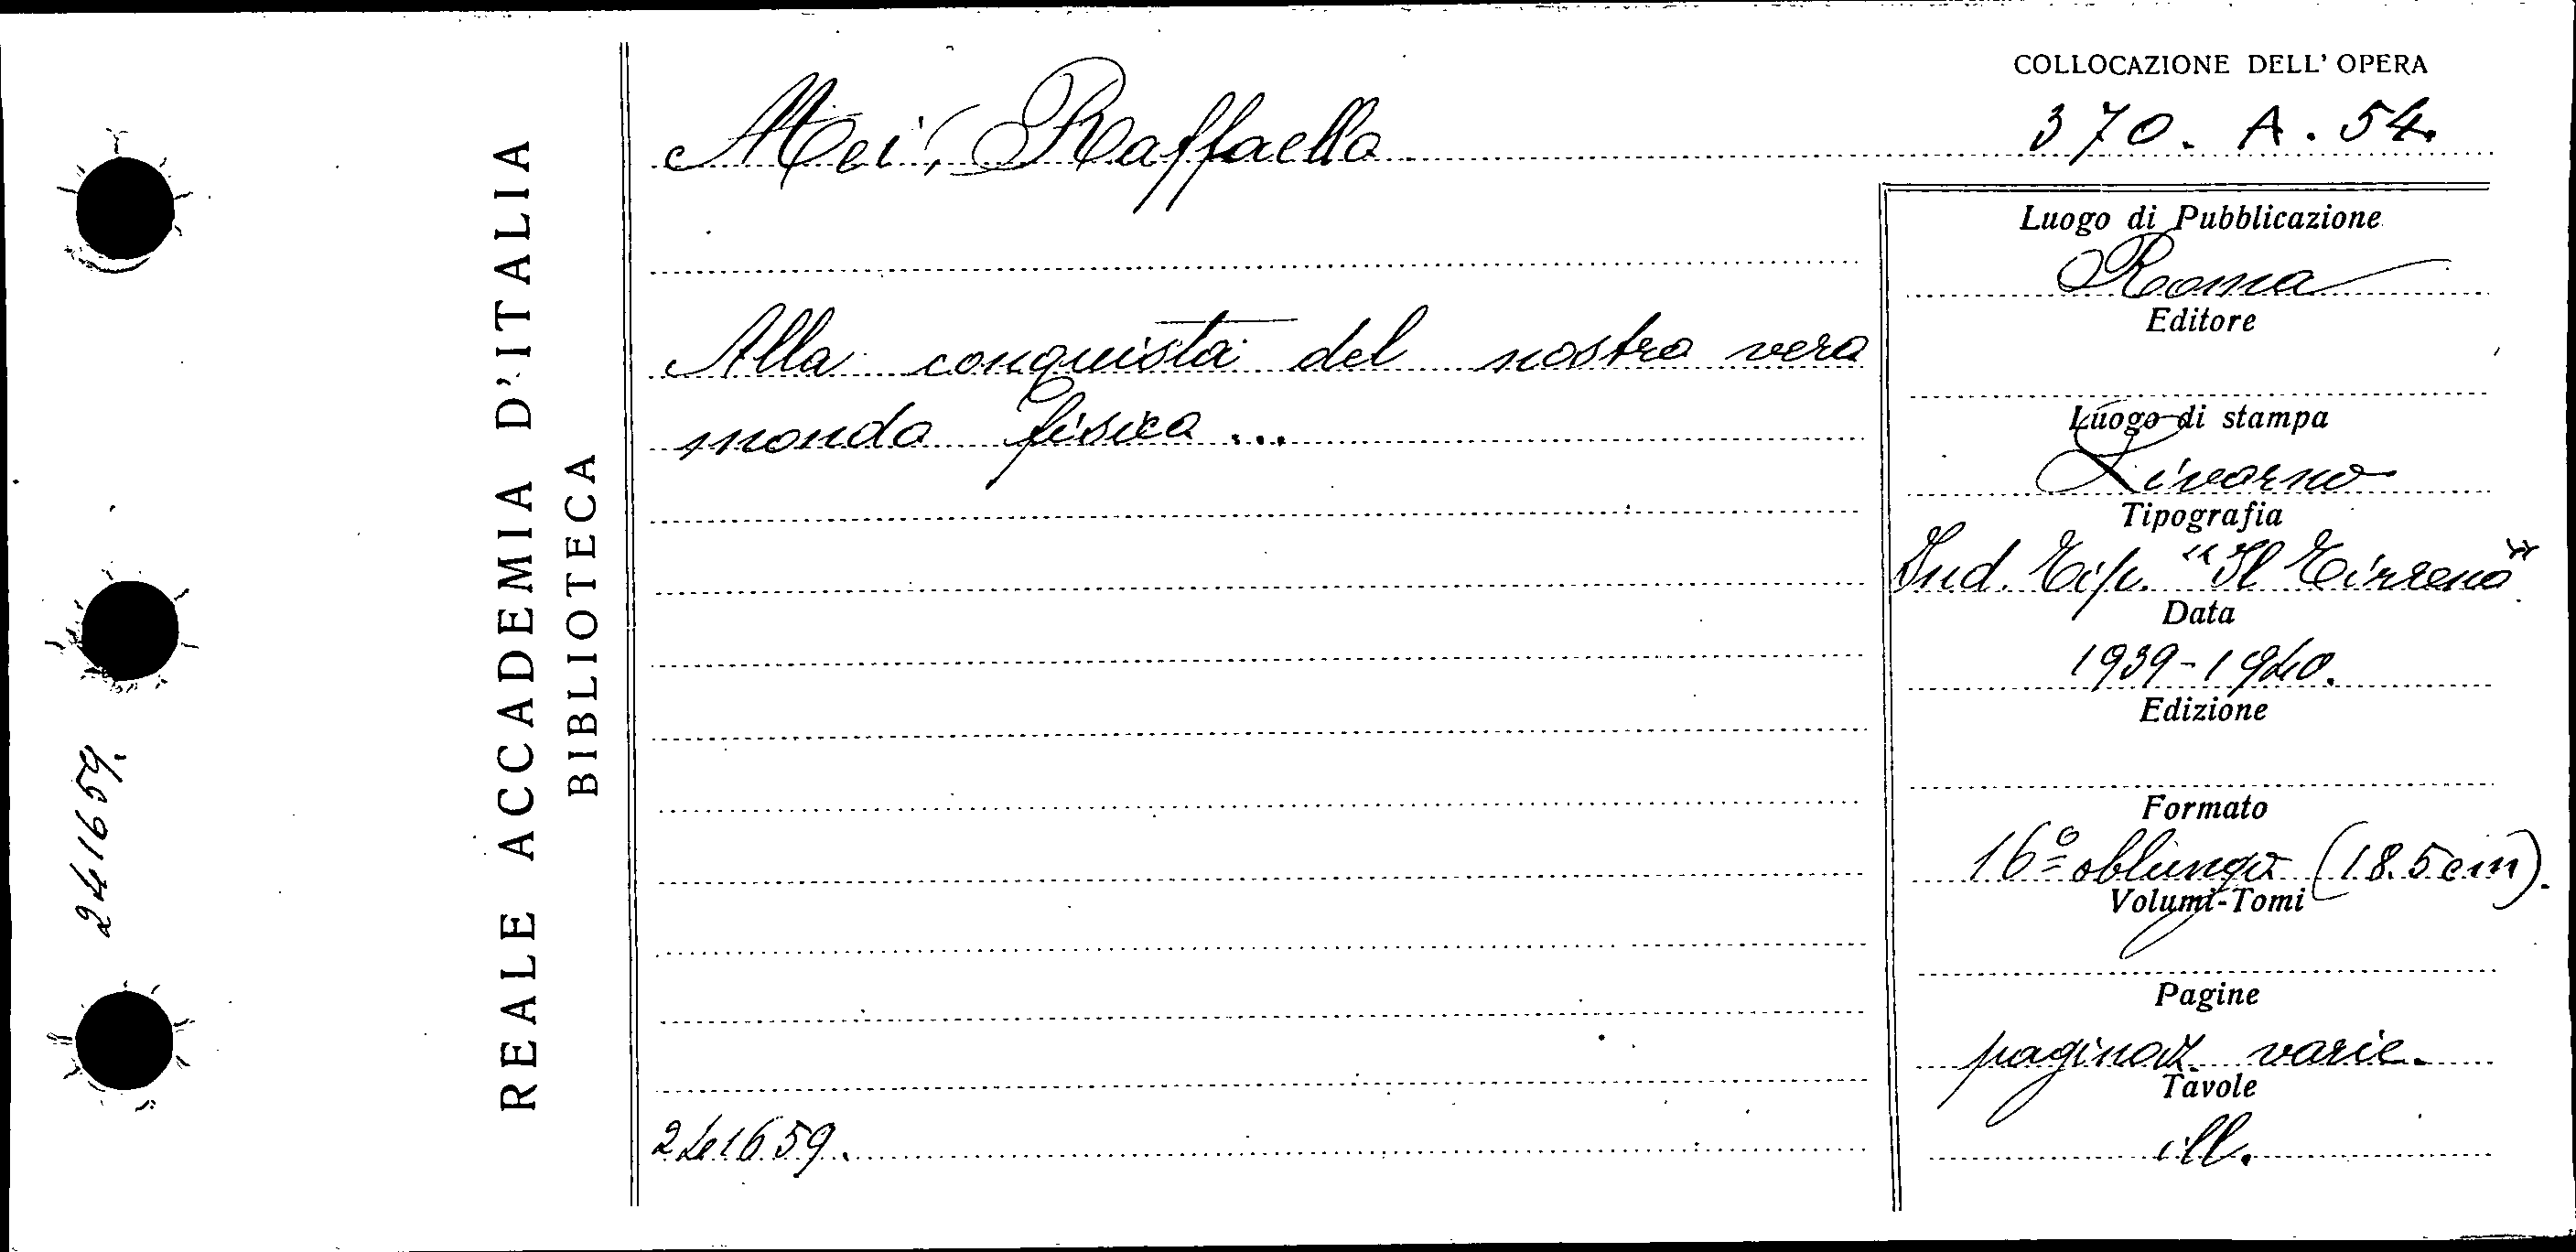 COLLOCAZIONE DELL' OPERA
370. A. 54.
Mei, Raffaello
Alla conquista del nostro vero
mondo fisico ...
241659.
Luogo di Pubblicazione
Roma
Editore
Luogo di stampa
Livorno
Tipografia
Ind. Tip. "Il Tirreno"
Data
1939-1940.
Edizione
Formato
16º oblungo (18.5 cm).
Volumi-Tomi
Pagine
paginaz. varie.
Tavole
ill.
REALE ACCADEMIA D'ITALIA
BIBLIOTECA
241659.